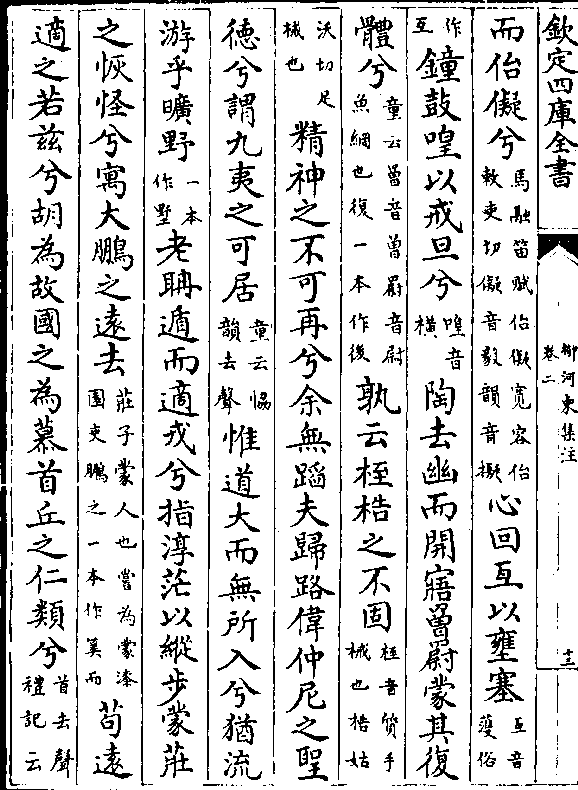 欽定四庫全書
柳河東集注
卷二
十三
而佁儗兮馬融笛賦佁儗寛容佁敕吏切儗音毅韻音擬心回亙以壅塞亙音䕶俗
作互鐘鼓喤以戒旦兮喤音橫陶去幽而開寤罾罻蒙其復
體兮童云罾音曾罻音尉魚綱也復一本作後孰云桎梏之不固桎音質手械也梏姑
沃切足械也精神之不可再兮余無蹈夫歸路偉仲尼之聖
德兮謂九夷之可居童云愶韻去聲惟道大而無所入兮猶流
游乎曠野一本作墅老聃遁而適戎兮指淳茫以縱步蒙莊
之恢怪兮寓大鵬之遠去莊子蒙人也嘗為蒙漆園吏鵬之一本作莫而苟遠
適之若兹兮胡為故國之為慕首丘之仁類兮首去聲禮記云